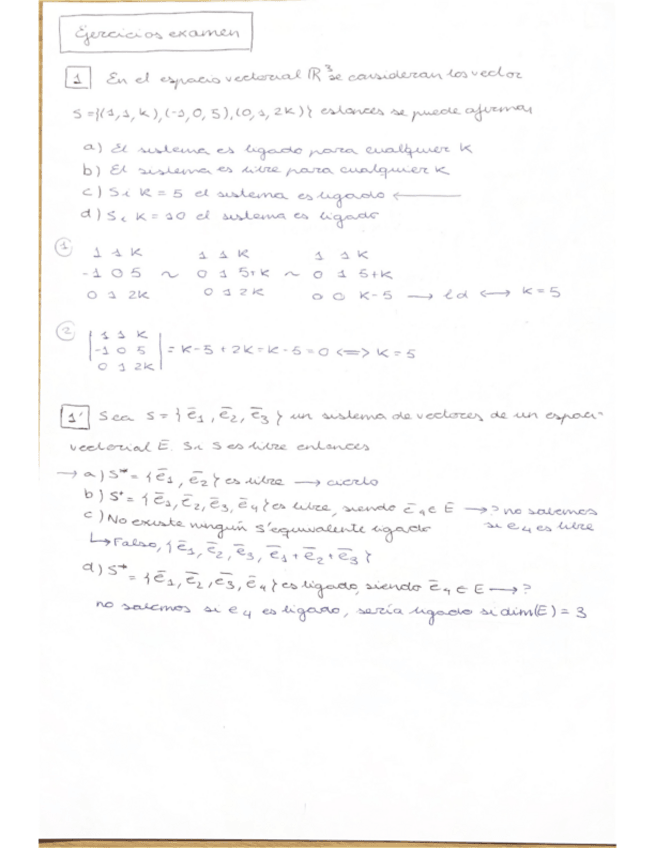 Ejercicios examen
1 En el espacio vectorial R³ se consideran los vector
S={(1,1,k),(-1,0,5),(0,1,2k)} entonces se puede afirmar
a) El sistema es ligado para cualquier K
b) El sistema es libre para cualquier K
c) Si K = 5 el sistema es ligado ←
d) Si K = 10 el sistema es ligado
① 1 1 K   1 1 K   1 1 K
-1 0 5 ~ 0 1 5+K ~ 0 1 5+K
0 1 2K   0 1 2K   0 0 K-5 → ld ↔ K=5
② | 1 1 K |
| -1 0 5 | = K-5+2K=K-5=0 <=> K=5
| 0 1 2K |
1' Sea S = { ē1, ē2, ē3 } un sistema de vectores de un espaci-
vectorial E. Si S es libre entonces
→ a) S* = { ē1, ē2 } es libre → cierto
b) S* = { ē1, ē2, ē3, ē4 } es libre, siendo ē4 ∈ E → ? no sabemos
si e4 es libre
c) No existe ningún S' equivalente ligado
↳ Falso, { ē1, ē2, ē3, ē1+ē2+ē3 }
d) S* = { ē1, ē2, ē3, ē4 } es ligado, siendo ē4 ∈ E → ?
no sabemos si e4 es ligado, sería ligado si dim(E) = 3